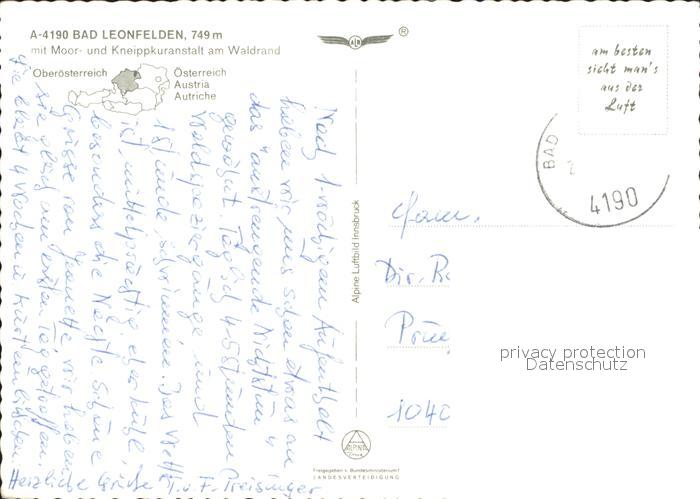 A-4190 BAD LEONFELDEN, 749 m
mit Moor- und Kneippkuranstalt am Waldrand
Oberösterreich
Österreich
Austria
Autriche
®
am besten
sieht man's
aus der
Luft
BAD
4190
Nach 1-wöchigem Aufenthalt
haben wir uns schon etwas an
das "anstrengende Nichtstun"
gewöhnt. Täglich 4-5 Stunden
Waldspaziergänge und
1 Stunde schwimmen. Das Wetter
ist mittelprächtig, eher kühl,
besonders die Nächte. Schöne
Grüsse von Jeannette, wir haben
sie gleich am ersten Tag getroffen.
Sie bleibt 4 Wochen
Herzliche Grüße
T. u. F. Preisinger
Alpine Luftbild Innsbruck
Fam.
Dir.
1040
privacy protection
Datenschutz
ALPINE
Freigegeben v. Bundesministerium f.
LANDESVERTEIDIGUNG